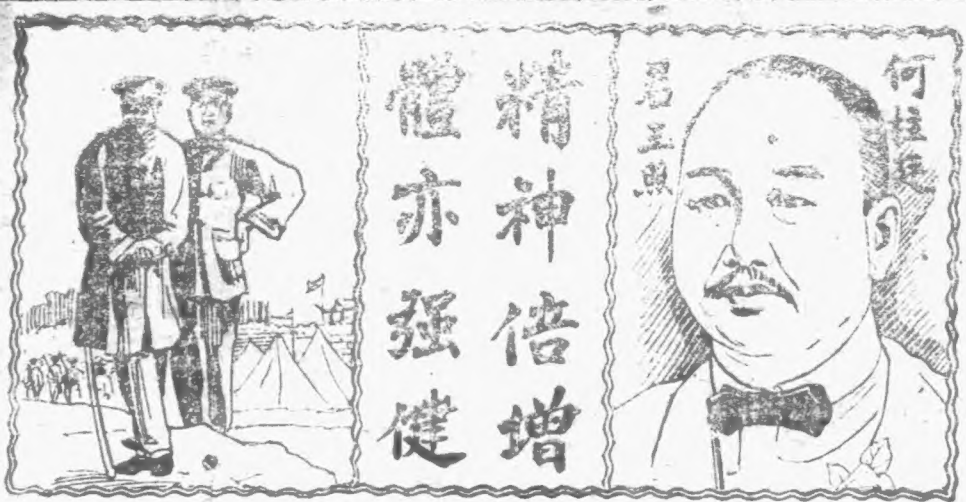 何桂
君玉照
精神倍增
體亦强健